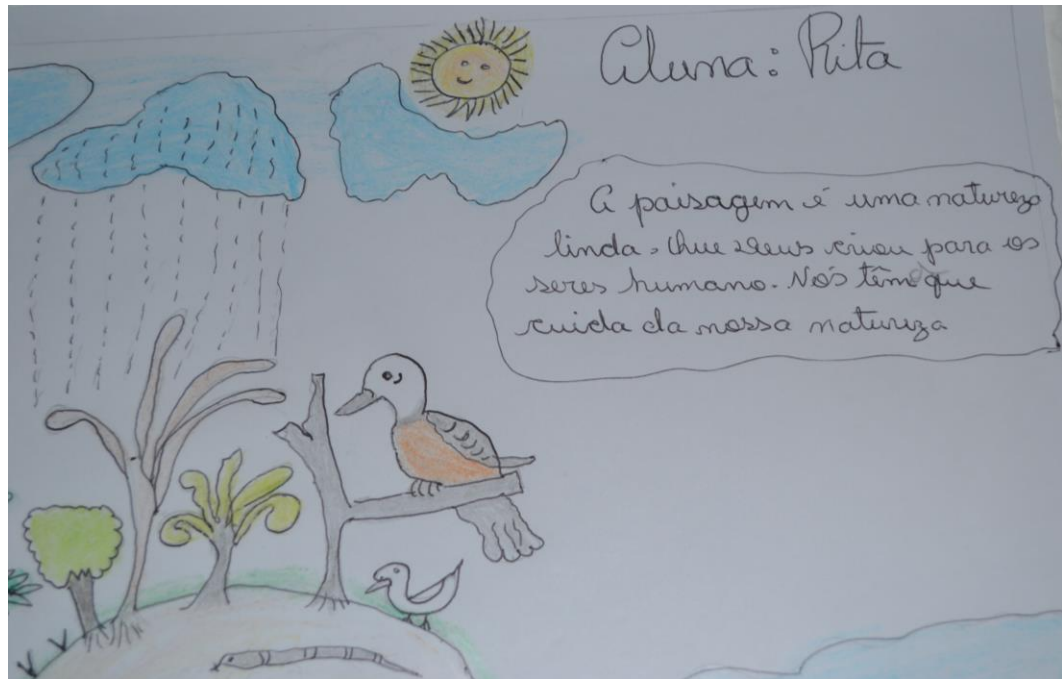 Aluna: Rita
A paisagem é uma natureza
linda. Que Deus criou para os
seres humano. Nós têm que
cuida da nossa natureza